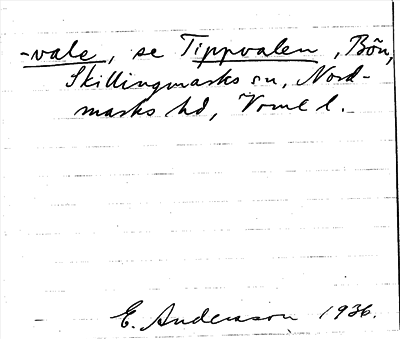 -vale, se Tippvalen, Bön,
Skillingmarks sn, Nord-
marks hd, Vrml l.
E. Andersson 1936.